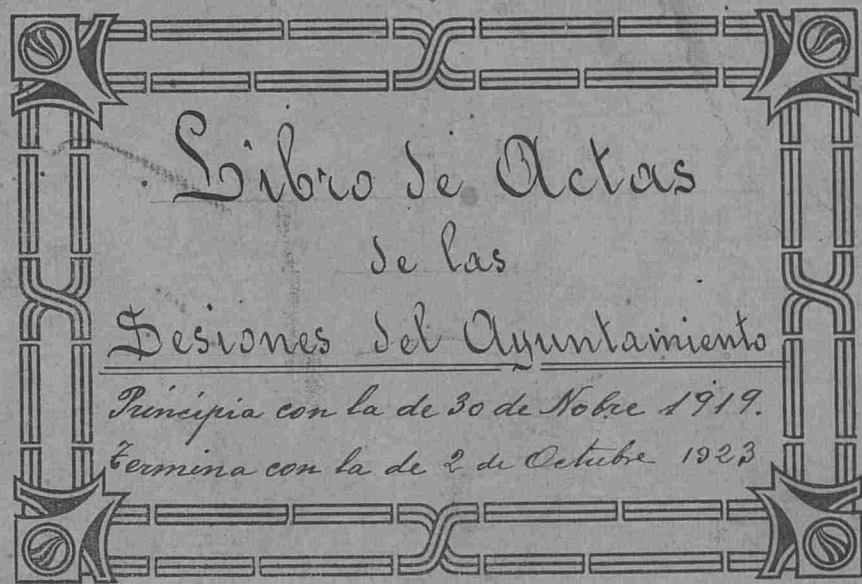 Libro de Actas
de las
Sesiones del Ayuntamiento
Principia con la de 30 de Nobre 1919.
Termina con la de 2 de Octubre 1923